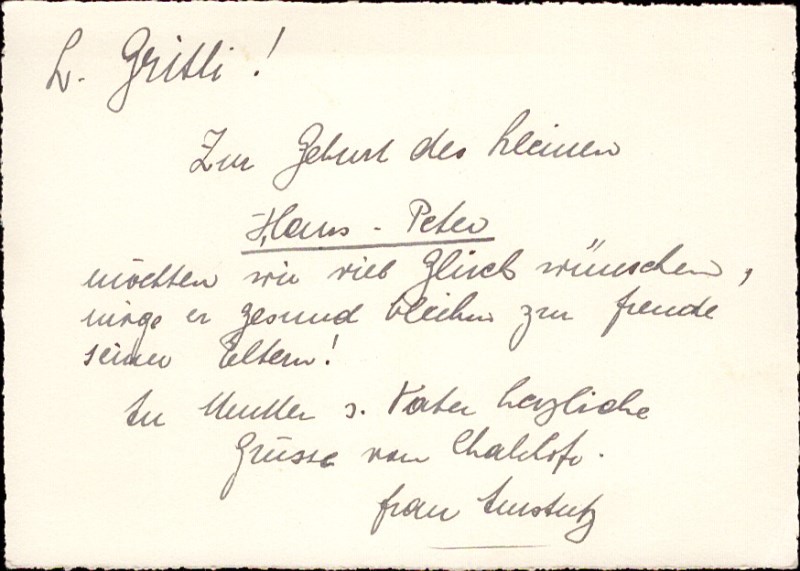 L. Gritli!
Zur Geburt des kleinen
Hans-Peter
möchten wir viel Glück wünschen,
möge er gesund bleiben zur Freude
seiner Eltern!
An Mutter u. Vater herzliche
Grüsse von
Frau Amstutz